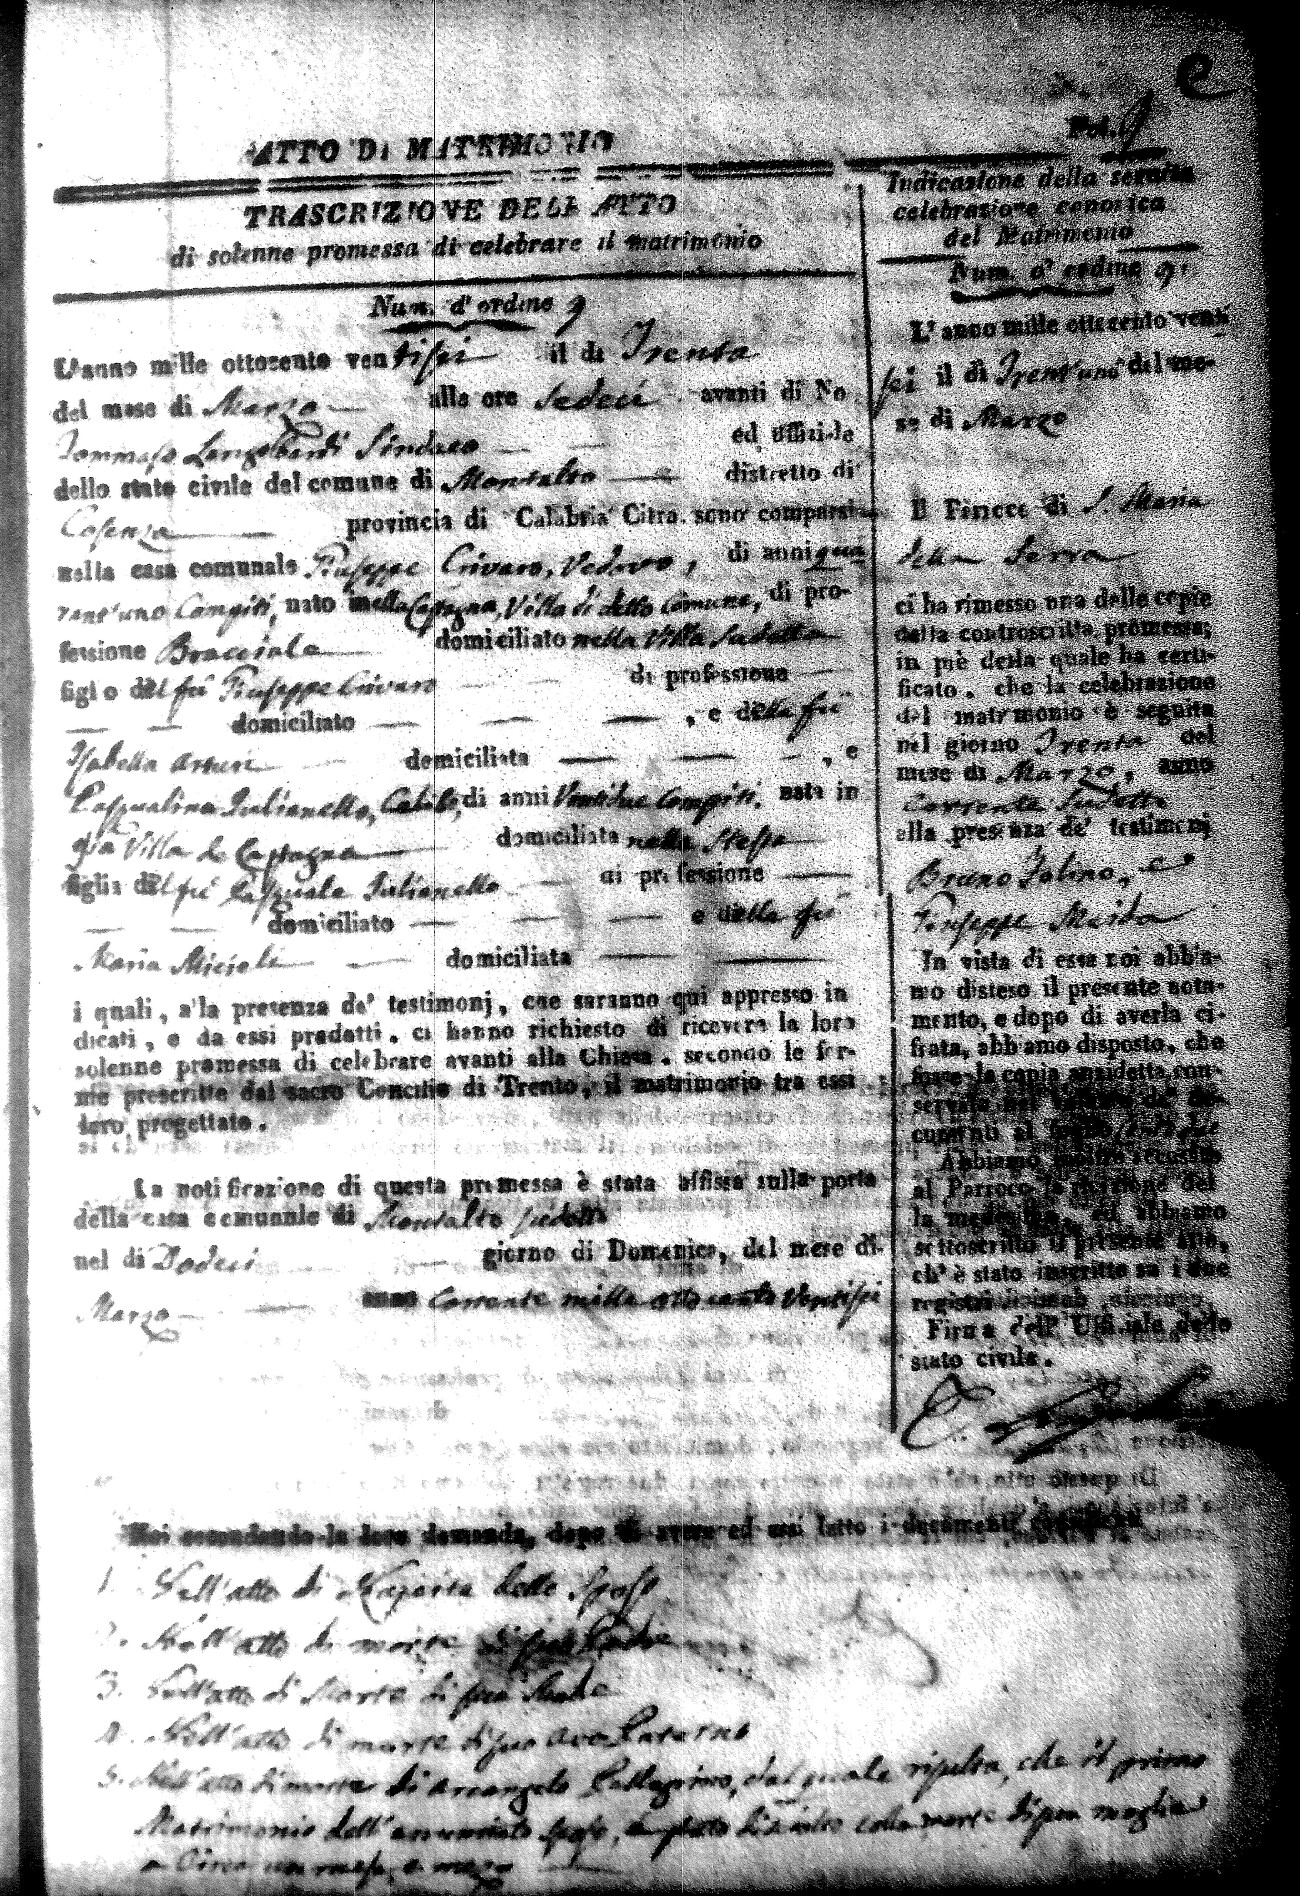 e
Fol. 9
ATTO DI MATRIMONIO
TRASCRIZIONE DELL'ATTO
di solenne promessa di celebrare il matrimonio
Num. d'ordine 9
L'anno mille ottocento ventisei il di Trenta
del mese di Marzo alle ore sedeci avanti di No
Tommaso Longobardi Sindaco ed uffiziale
dello stato civile del comune di Montalto distretto di
Cosenza provincia di Calabria Citra sono comparsi
nella casa comunale Giuseppe Crivaro, Vedovo, di anni qua
rant'uno Compiti, nato in nella Castagna, Villa di detto Comune, di pro-
fessione Bracciale domiciliato nella Villa Sudetta
figlio del fù Giuseppe Crivaro di professione
domiciliato , e della fù
Isabella domiciliata , e
Pasqualina Julianello, di anni Ventidue Compiti, nata in
Villa di Castagna domiciliata nella Stessa
figlia del fù Pasquale Julianello di professione
domiciliato e della fù
Maria domiciliata
i quali, a'la presenza de' testimonj, che saranno qui appresso in
dicati, e da essi prodotti, ci hanno richiesto di ricevere la loro
solenne promessa di celebrare avanti alla Chiesa, secondo le for-
me prescritte dal sacro Concilio di Trento, il matrimonio tra essi
loro progettato.
La notificazione di questa promessa è stata affissa sulla porta
della casa comunale di Montalto sudetto
nel di Dodeci giorno di Domenica, del mese di
Marzo anno Corrente mille otto cento Ventisei
Indicazione della seguita
celebrazione canonica
del Matrimonio
Num. d'ordine 9
L'anno mille ottocento venti
sei il di Trent'uno del me-
se di Marzo
Il Parroco di S. Maria
della Serra
ci ha rimesso una delle copie
della controscritta promessa;
in piè della quale ha certi-
ficato, che la celebrazione
del matrimonio è seguita
nel giorno Trenta del
mese di Marzo, anno
Corrente Sudetto
alla presenza de' testimonj
Bruno, e
Giuseppe
In vista di essa noi abbia-
mo disteso il presente nota-
mento, e dopo di averla ci-
frata, abbiamo disposto, che
fosse la copia anzidetta con-
servata nel volume de' do-
cumenti al foglio
Abbiamo accusato
al Parroco la ricezione del
la medesima, ed abbiamo
sottoscritto il presente atto,
ch' è stato inscritto su i due
registri
Firma dell' Uffiziale dello
stato civile.
Noi secondando la loro domanda, dopo di avere ed essi letto i documenti
1. Dell'atto di Nascita dello Sposo
2. Dell'atto di morte di suo Padre
3. Dell'atto di Morte di sua Madre
4. Dell'atto di morte di suo Avo Paterno
5. Dell'atto di morte di Arcangela Pellegrino, dal quale risulta, che il primo
Matrimonio dell'annunciato Sposo, è stato disciolto colla morte di sua moglie